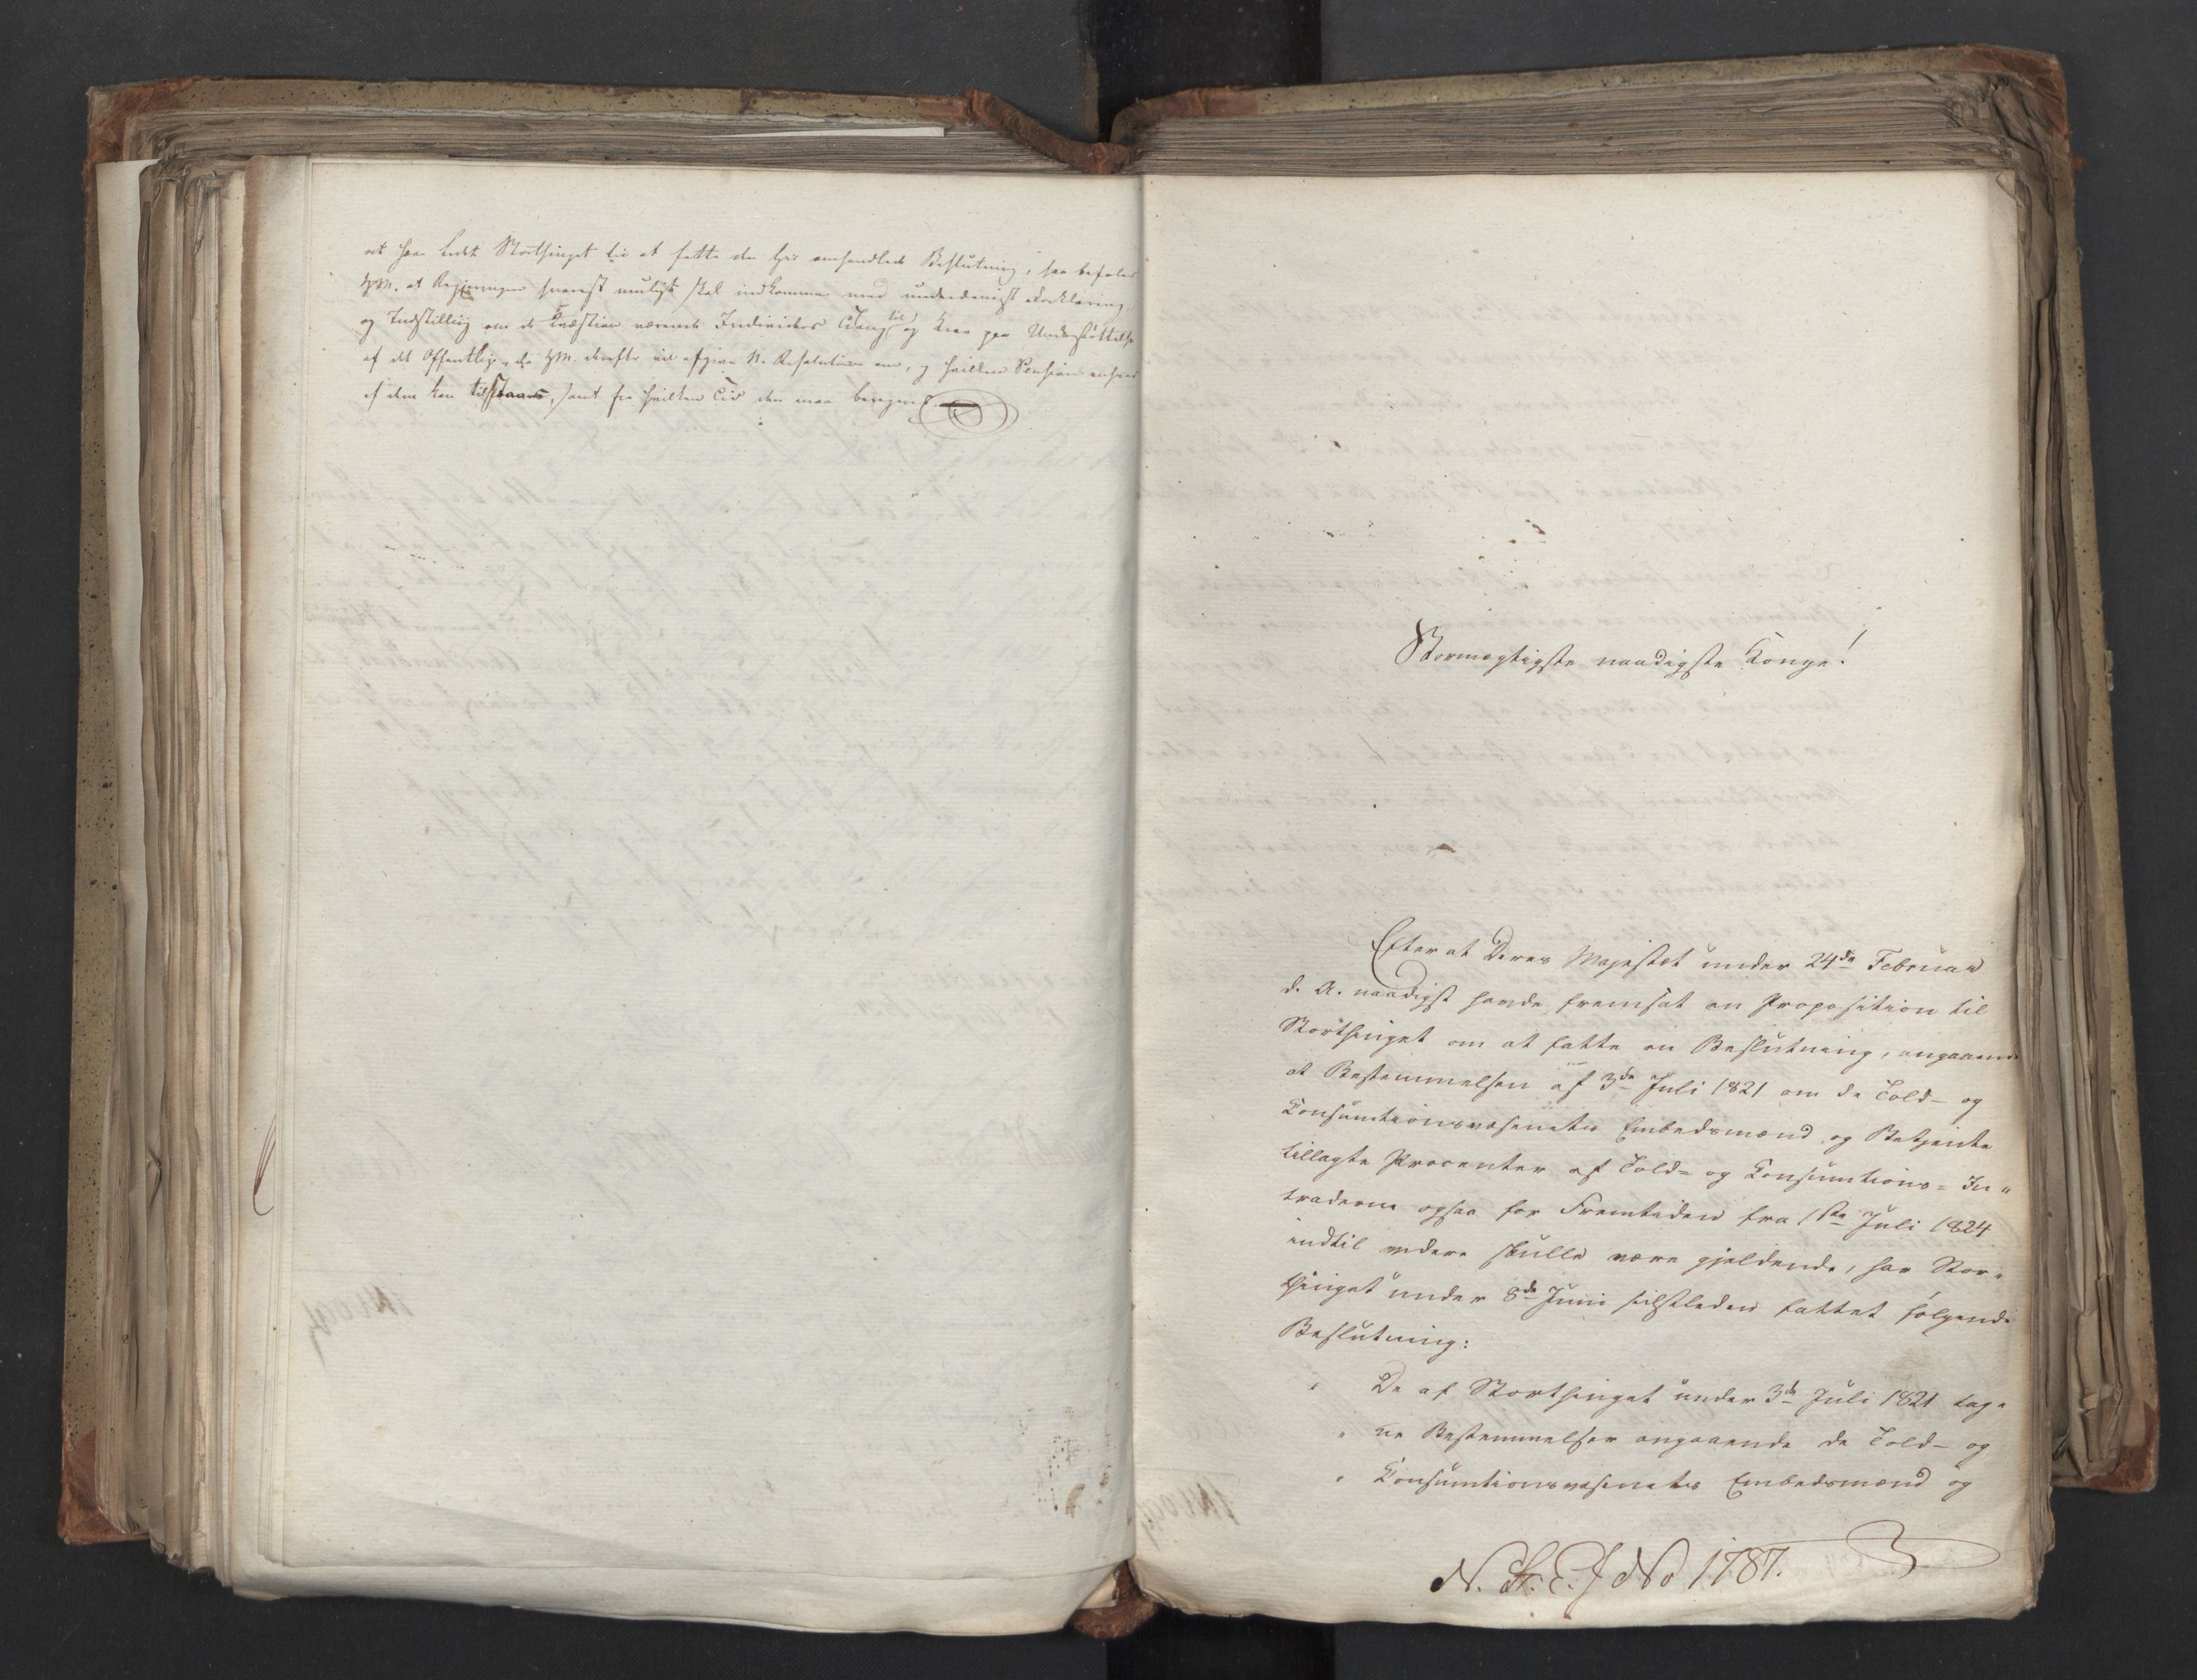 at have ledet Storthinget til at fatte den her omhandlede Beslutning, saa befaler
HM. at Regjeringen snarest muligt skal indkomme med underdanigst Forklaring
og Indstilling om de Qvæstion værende Individers Trang til og Krav paa Understøttelse
af det Offentlige, da HM. derefter vil afgive N. Resolution om, og hvilken Pension enhver
af dem kan tilstaaes, samt fra hvilken Tid den maa beregnes.
Stormægtigste naadigste Konge!
Efter at Deres Majestæt under 24de Februar
d. A. naadigst havde fremsat en Proposition til
Storthinget om at fatte en Beslutning, angaaende
at Bestemmelsen af 3de Juli 1821 om de Told- og
Consumtionsvæsenets Embedsmænd og Betjente
tillagte Procenter af Told- og Consumtions-In-
traderne ogsaa for Fremtiden fra 1ste Juli 1824
indtil videre skulle være gjeldende, har Stor-
thinget under 8de Juni sidstleden fattet følgende
Beslutning:
" De af Storthinget under 3de Juli 1821 tag-
" ne Bestemmelser angaaende de Told- og
" Consumtionsvæsenets Embedsmænd og
No 1787.